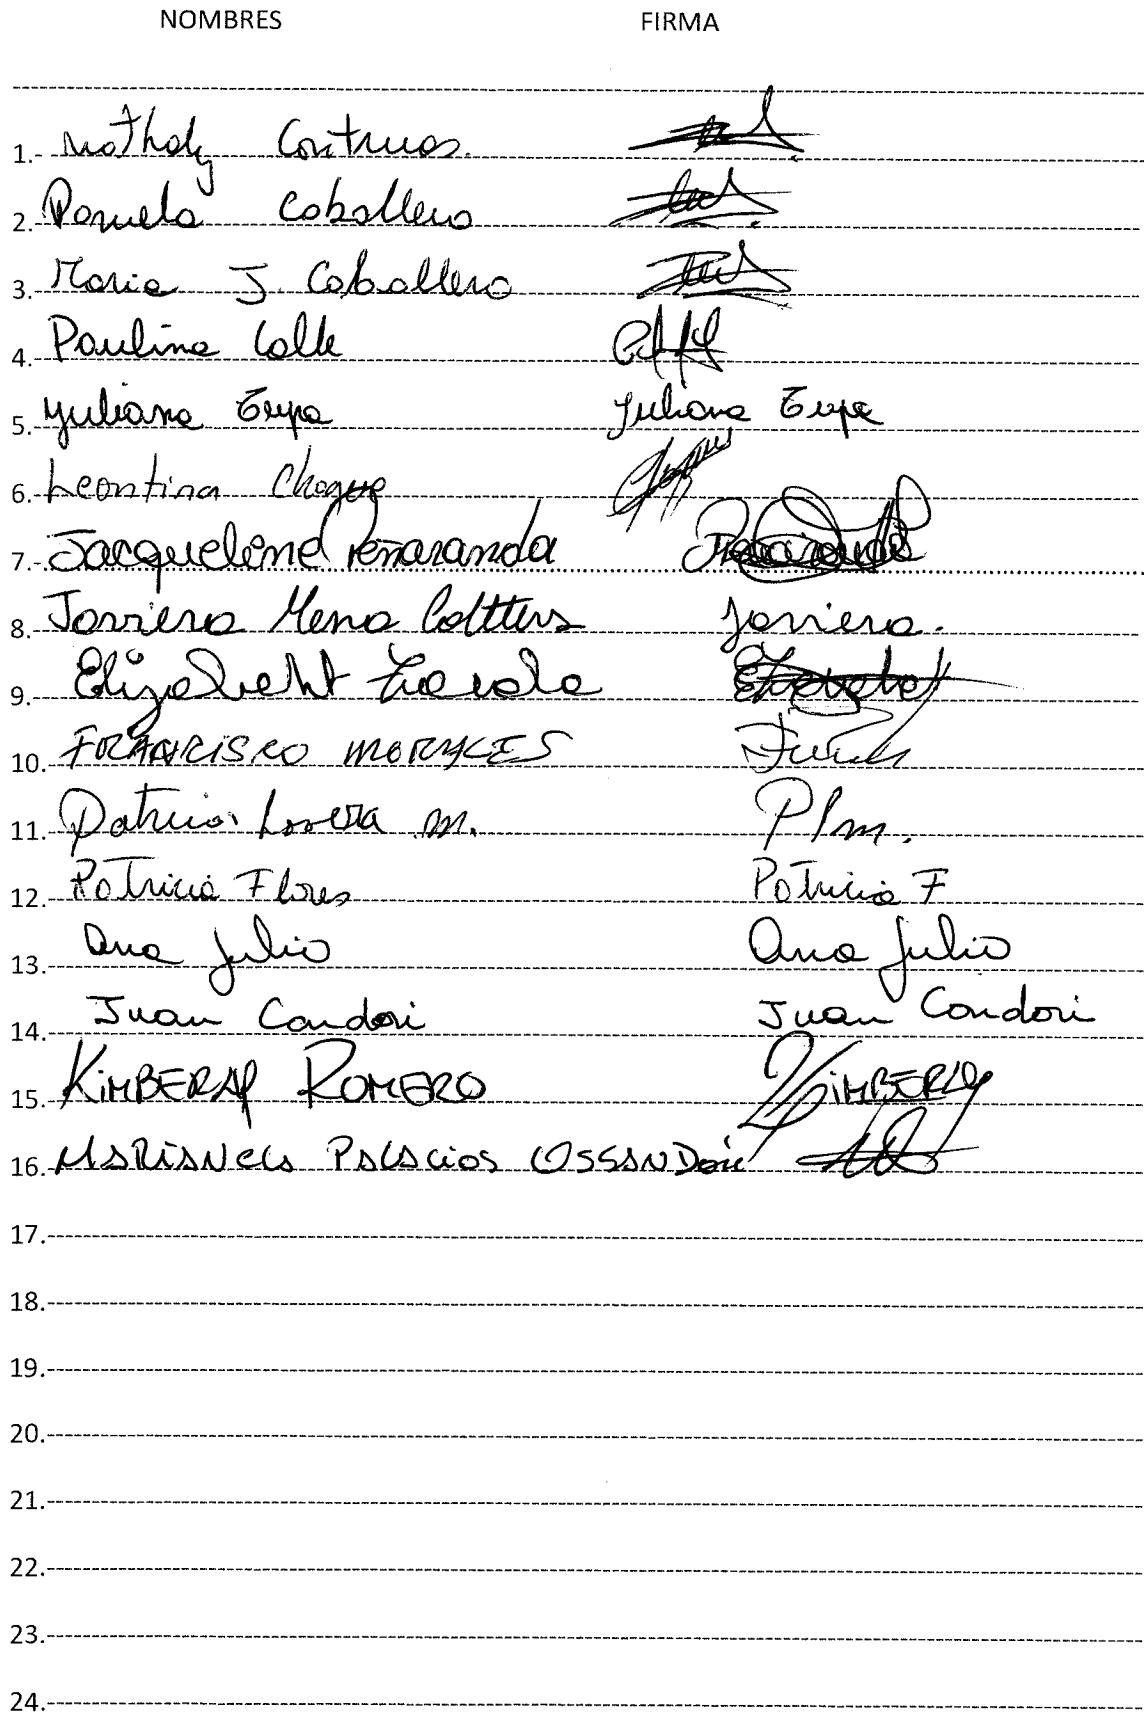 NOMBRES FIRMA
1.- Nathaly Contreras.
2. Pamela Caballero
3. Maria J. Caballero
4. Paulina Calle
5. Yuliana Supa Yuliana Supa
6. Leontina Choque
7. Jacqueline Peñaranda
8. Javiera Mena Coltters Javiera.
9. Elizabeht
10. FRANCISCO MORALES
11. Patricia Lovera M. PLM.
12. Patricia Flores Patricia F
13. Ana Julio Ana Julio
14. Juan Condori Juan Condori
15. KIMBERLY ROMERO KIMBERLY
16. MARIANELA PALACIOS OSSANDON
17.
18.
19.
20.
21.
22.
23.
24.